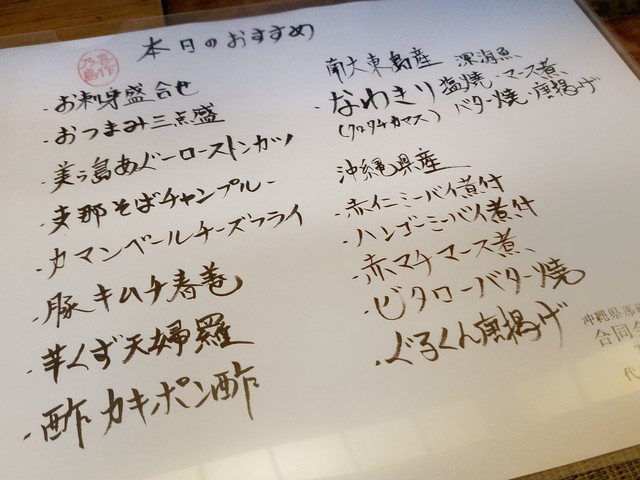 本日のおすすめ
・お刺身盛合せ
・おつまみ三点盛
・美ら島あぐーローストンカツ
・支那そばチャンプルー
・カマンベールチーズフライ
・豚キムチ春巻
・芋くず天婦羅
・酢カキポン酢
南大東島産 深海魚
・なわきり 塩焼・マース煮、
(クロタチカマス) バター焼・唐揚げ
沖縄県産
・赤仁ミーバイ煮付
・ハンゴーミーバイ煮付
・赤マチマース煮、
・ビタローバター焼
・ぐるくん唐揚げ
沖縄県那
合同会
代